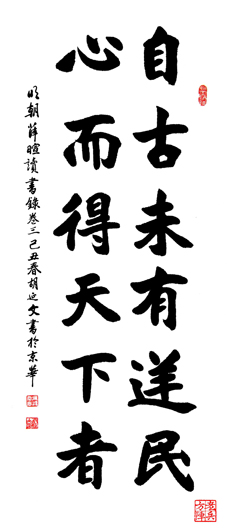 自古未有逆民
心而得天下者
明朝薛瑄读书录卷三己丑春胡延文书於京华